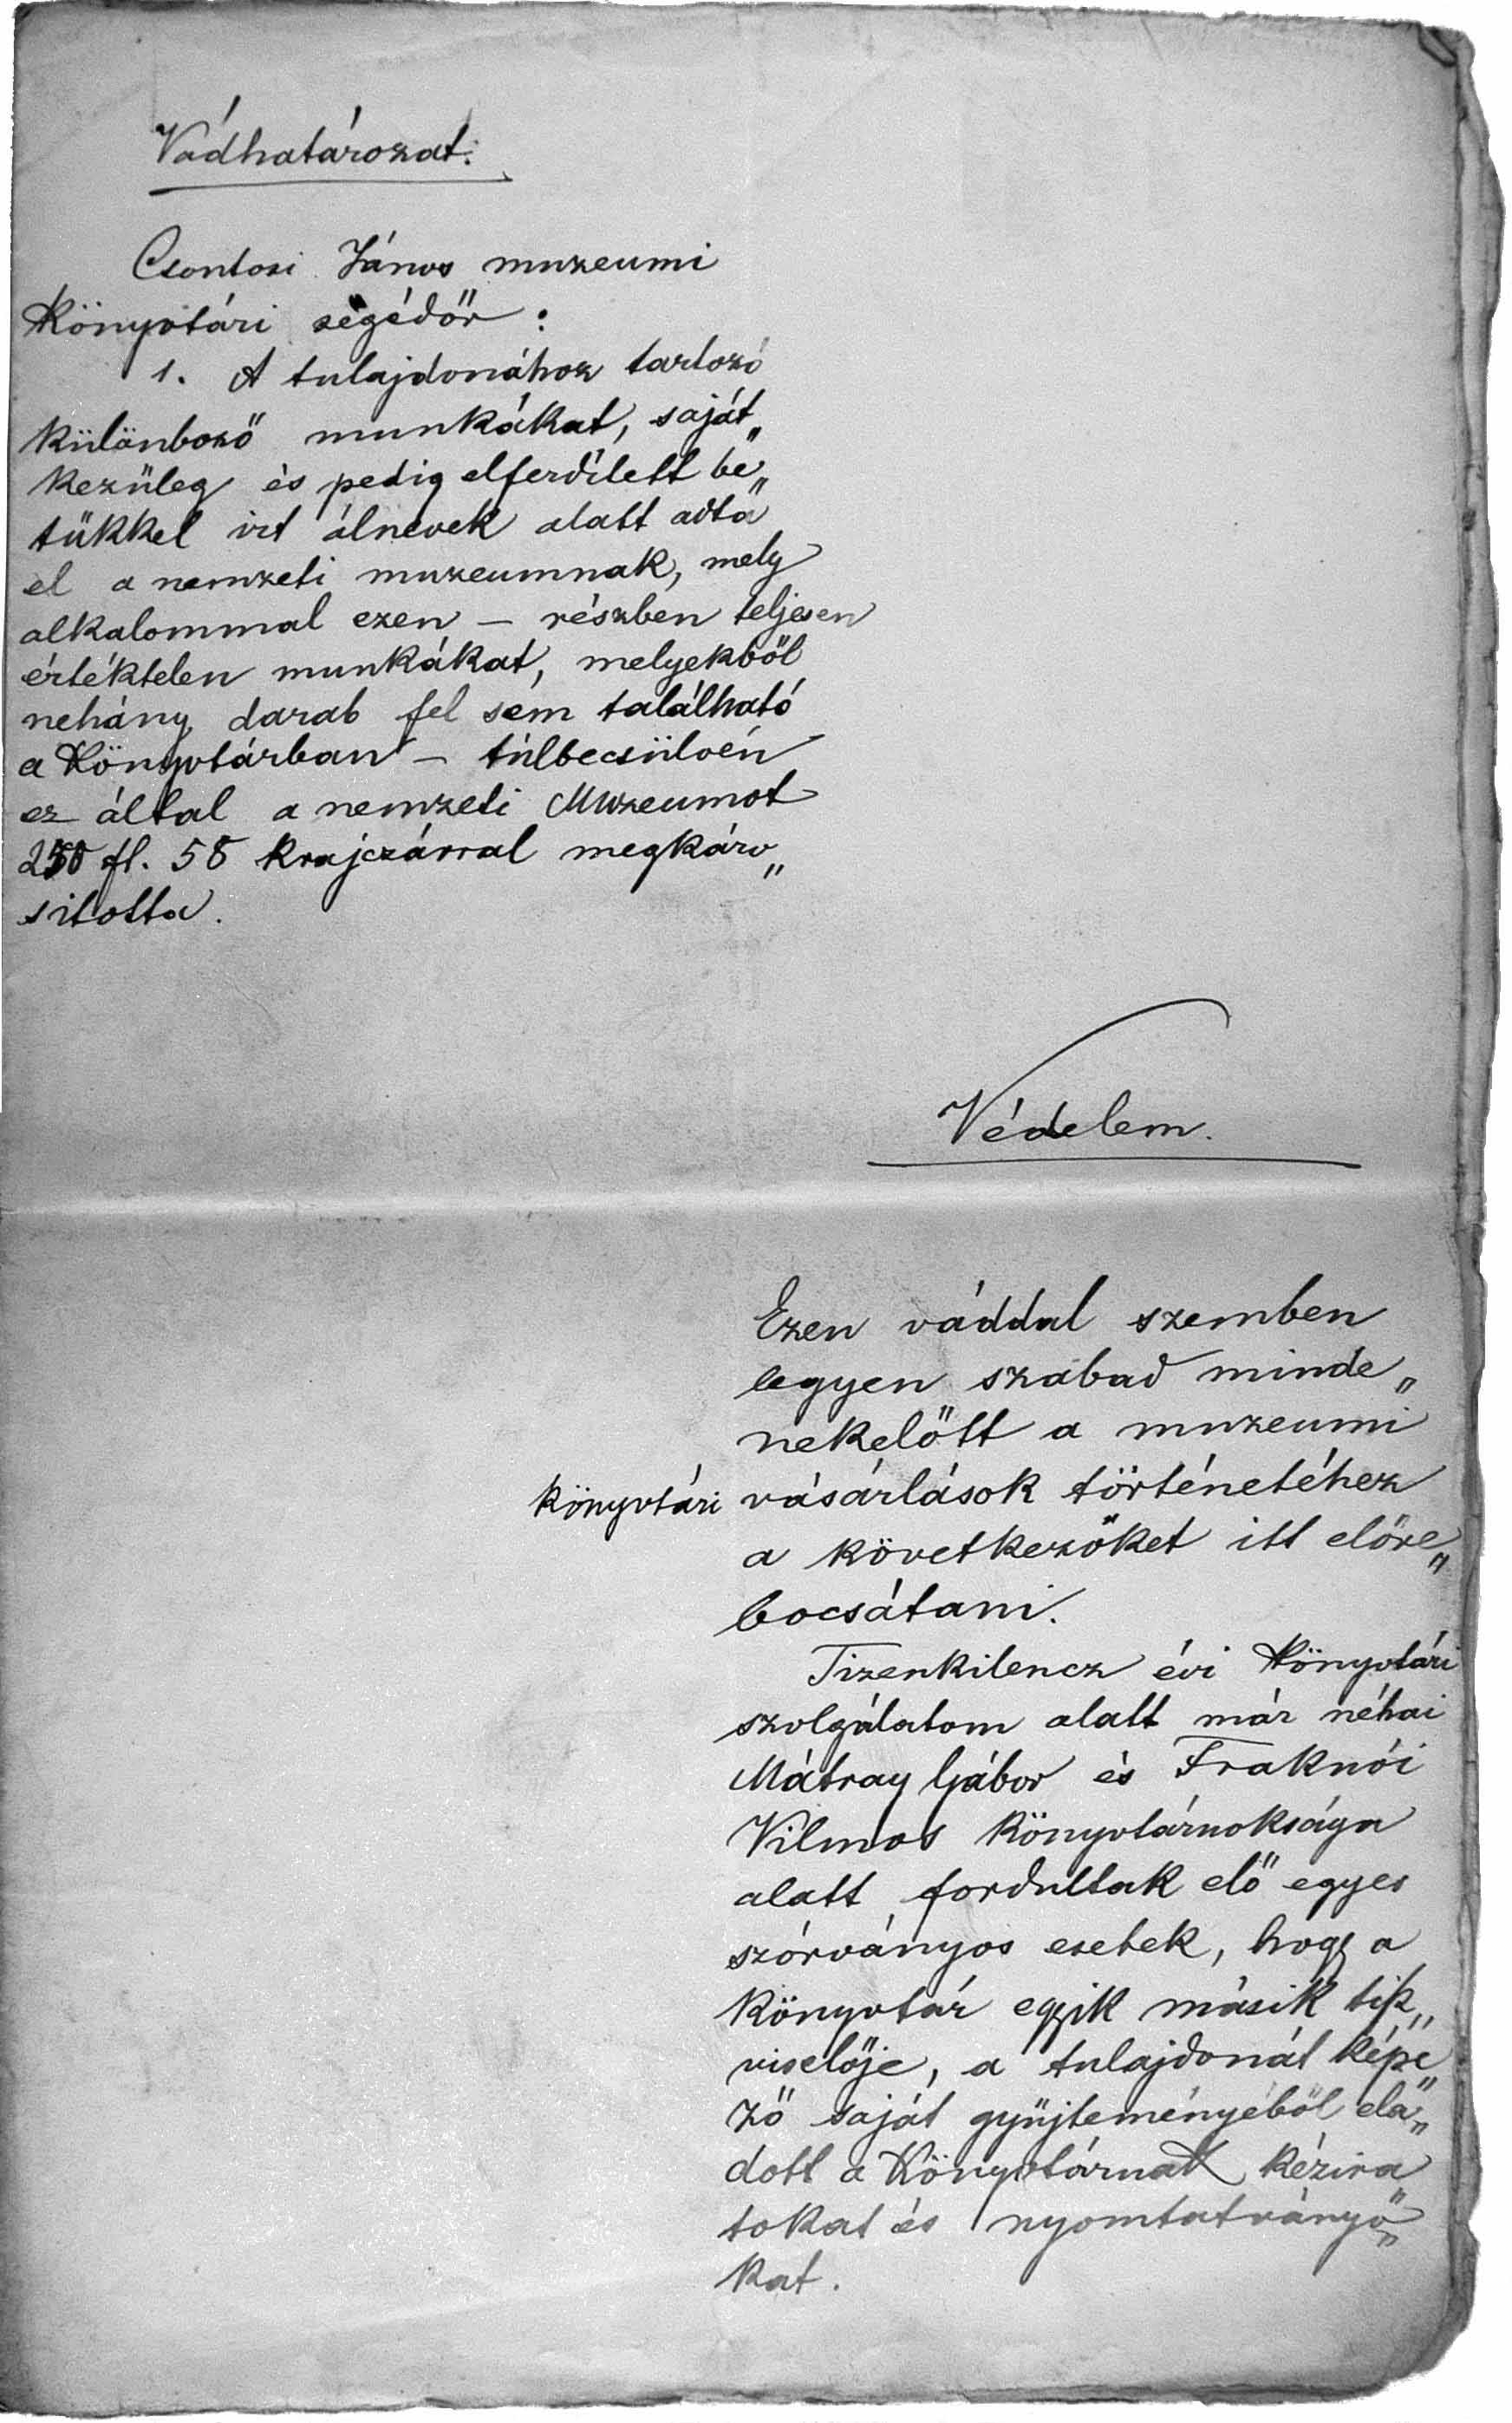 Vádhatározat.
Csontosi János muzeumi
könyvtári segédőr :
1. A tulajdonához tartozó
különböző munkákat, saját„
kezüleg és pedig elferdített be„
tükkel irt álnevek alatt adta
el a nemzeti muzeumnak, mely
alkalommal ezen – részben teljesen
értéktelen munkákat, melyekből
nehány darab fel sem található
a könyvtárban – túlbecsülvén
ez által a nemzeti Muzeumot
250 fl. 58 krajczárral megkáro„
sitotta.
Védelem.
Ezen váddal szemben
legyen szabad minde„
nekelőtt a muzeumi
könyvtári vásárlások történetéhez
a következőket itt előre„
bocsátani.
Tizenkilencz évi könyvtári
szolgálatom alatt már néhai
Mátray Gábor és Fraknói
Vilmos könyvtárnoksága
alatt fordultak elő egyes
szórványos esetek, hogy a
könyvtár egyik másik tiszt„
viselője, a tulajdonát képe„
ző saját gyüjteményéből ela„
dott a könyvtárnak kézira„
tokat és nyomtatványo„
kat.